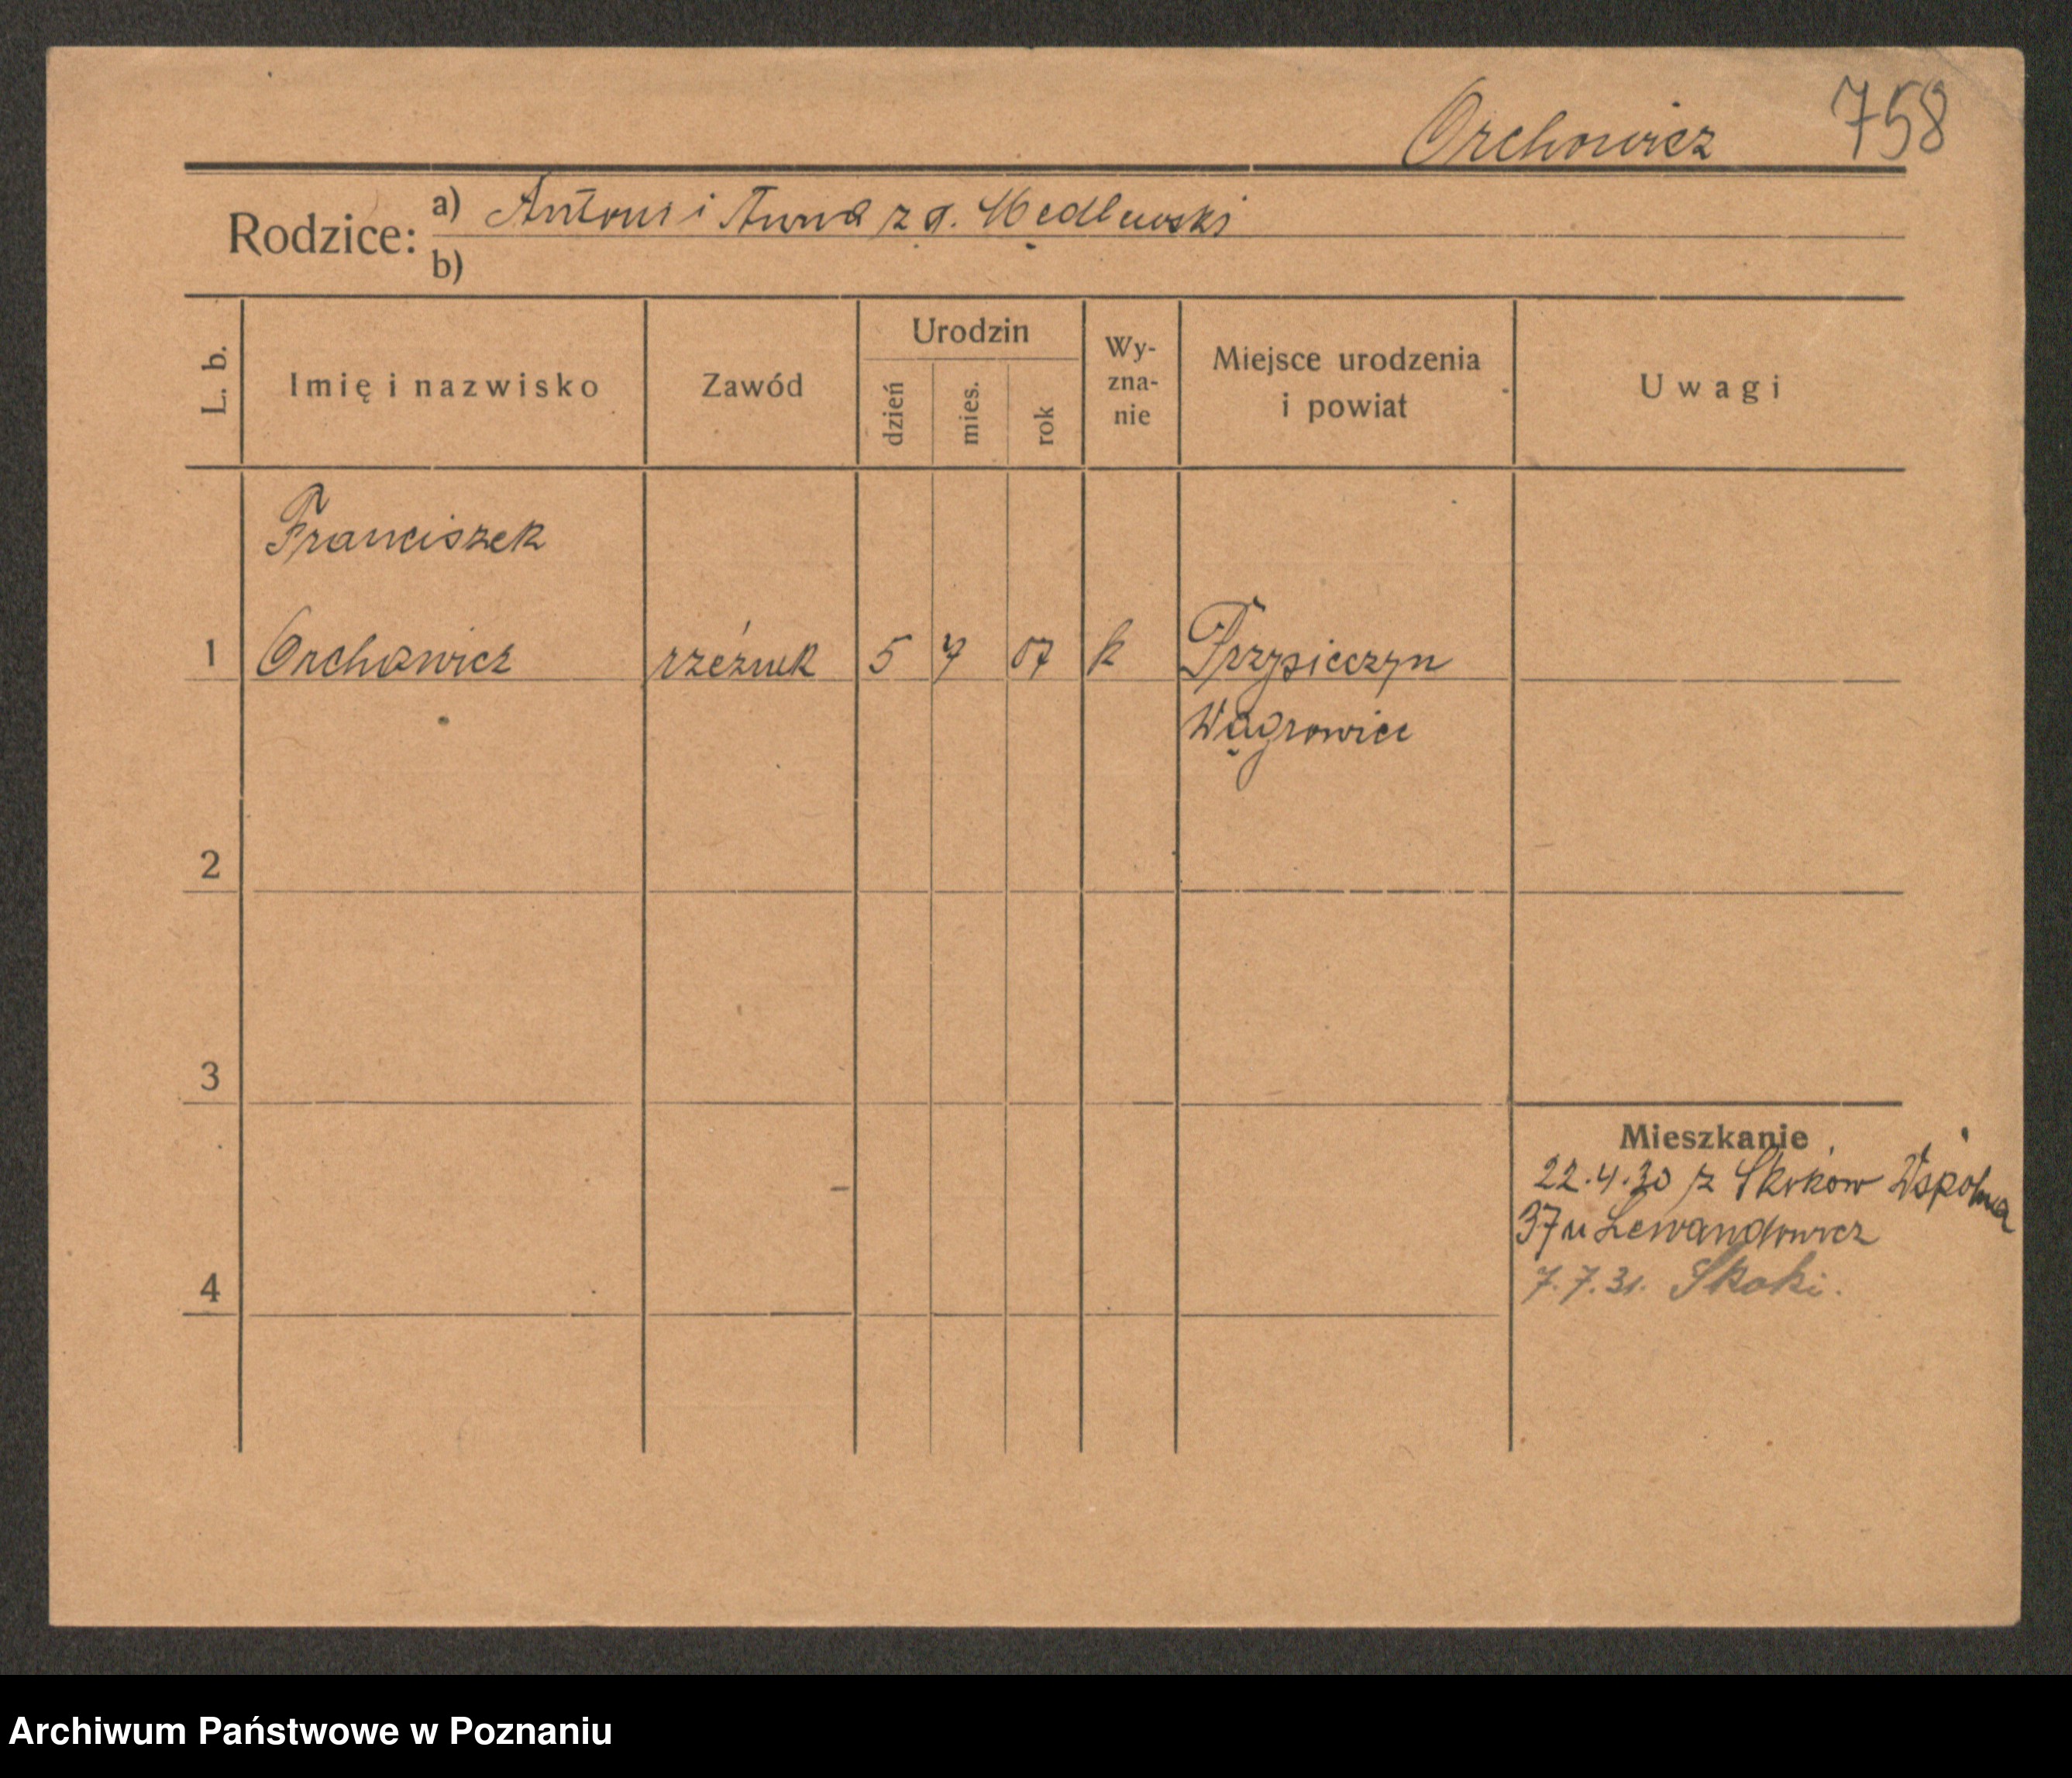 Orchowicz 758
Rodzice: a) Antoni i Anna z d. Mędlewski
b)
L. b. Imię i nazwisko Zawód Urodzin dzień mies. rok Wy-zna-nie Miejsce urodzenia i powiat Uwagi
Franciszek
1 Orchowicz rzeźnik 5 7 07 k Przysieczyn
Wągrowiec
2
3
Mieszkanie
22.4.30 z Skoków Wspólna
37 u Lewandowicz
7.7.31. Skoki.
4
Archiwum Państwowe w Poznaniu